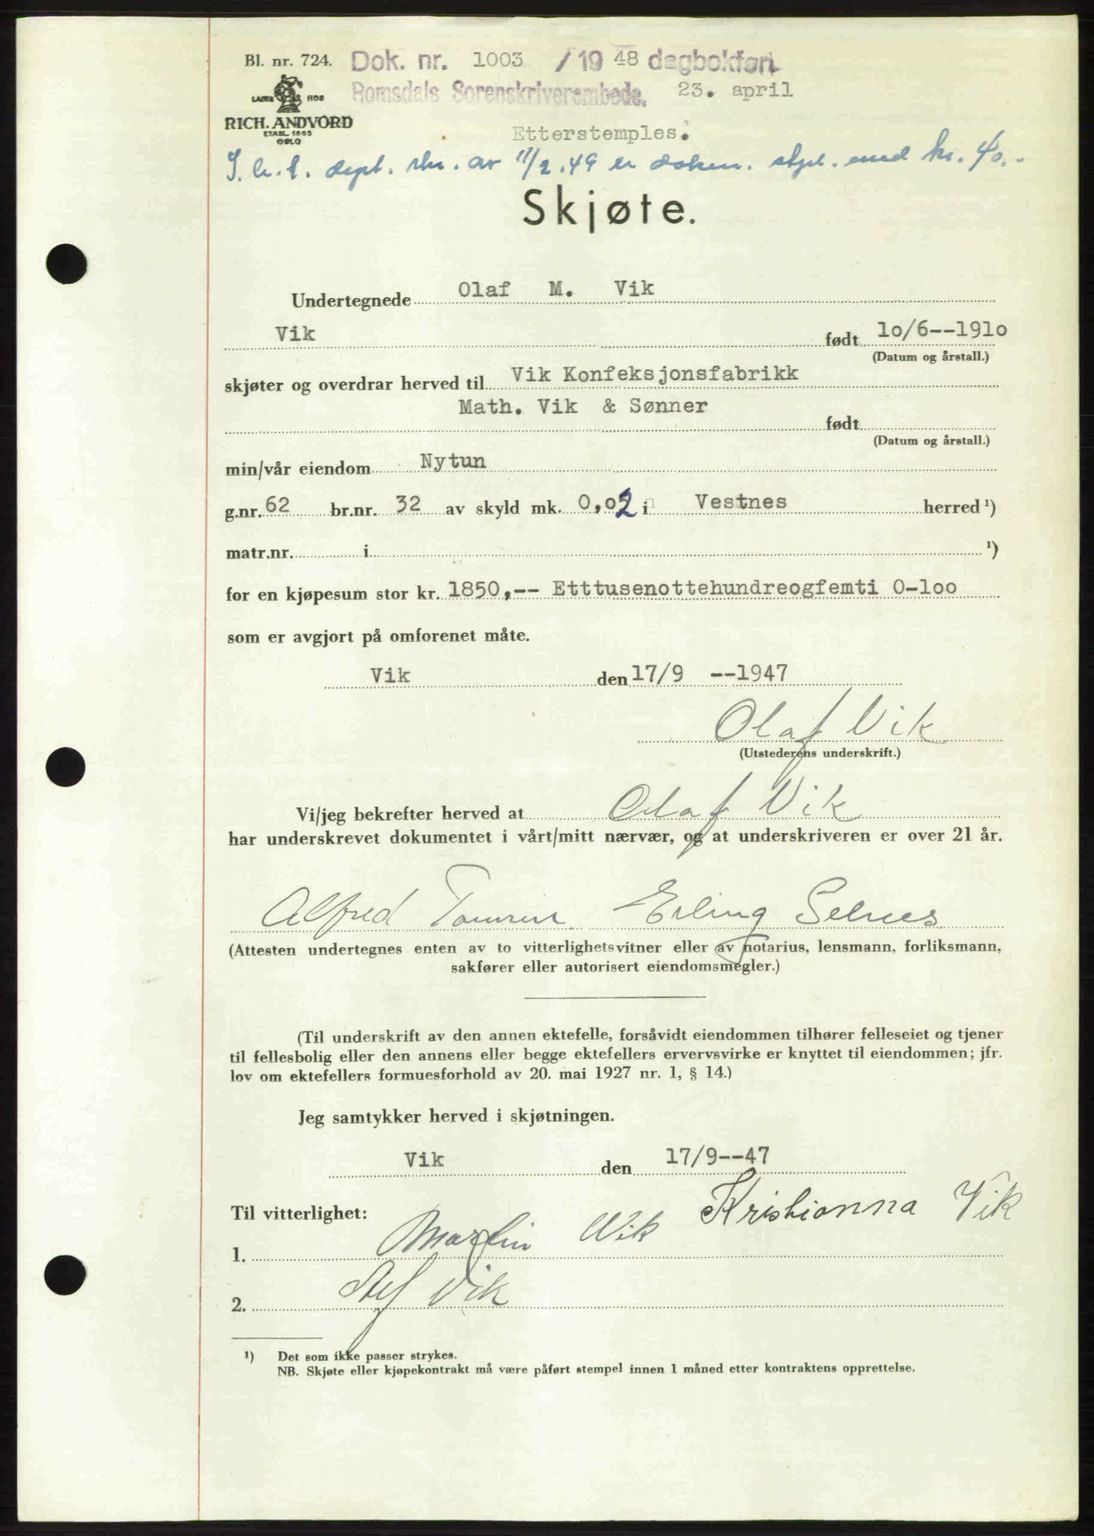 Bl. nr. 724. Dok. nr. 1003 /1948 dagbokført
Romsdals Sorenskriverembede, 23. april
LAGER HOS
RICH. ANDVORD
ETABL. 1865
OSLO
Etterstemples.
dept. skr. av 11/2.49 er dokum. stpl. med kr. 40.-
Skjøte.
Undertegnede Olaf M. Vik
Vik født 1o/6--191o
(Datum og årstall.)
skjøter og overdrar herved til Vik Konfeksjonsfabrikk
Math. Vik & Sønner født
(Datum og årstall.)
min/vår eiendom Nytun
g.nr. 62 br.nr. 32 av skyld mk. 0,02 i Vestnes herred ¹)
matr.nr. i ¹)
for en kjøpesum stor kr. 1850,-- Etttusenottehundreogfemti 0-1oo
som er avgjort på omforenet måte.
Vik den 17/9 --1947
Olaf Vik
(Utstederens underskrift.)
Vi/jeg bekrefter herved at Olaf Vik
har underskrevet dokumentet i vårt/mitt nærvær, og at underskriveren er over 21 år.
Alfred Erling Selnes
(Attesten undertegnes enten av to vitterlighetsvitner eller av notarius, lensmann, forliksmann,
sakfører eller autorisert eiendomsmegler.)
(Til underskrift av den annen ektefelle, forsåvidt eiendommen tilhører felleseiet og tjener
til fellesbolig eller den annens eller begge ektefellers ervervsvirke er knyttet til eiendommen; jfr.
lov om ektefellers formuesforhold av 20. mai 1927 nr. 1, § 14.)
Jeg samtykker herved i skjøtningen.
Vik den 17/9--47
Kristianna Vik
Til vitterlighet:
1. Martin Vik
2. Vik
¹) Det som ikke passer strykes.
NB. Skjøte eller kjøpekontrakt må være påført stempel innen 1 måned etter kontraktens opprettelse.